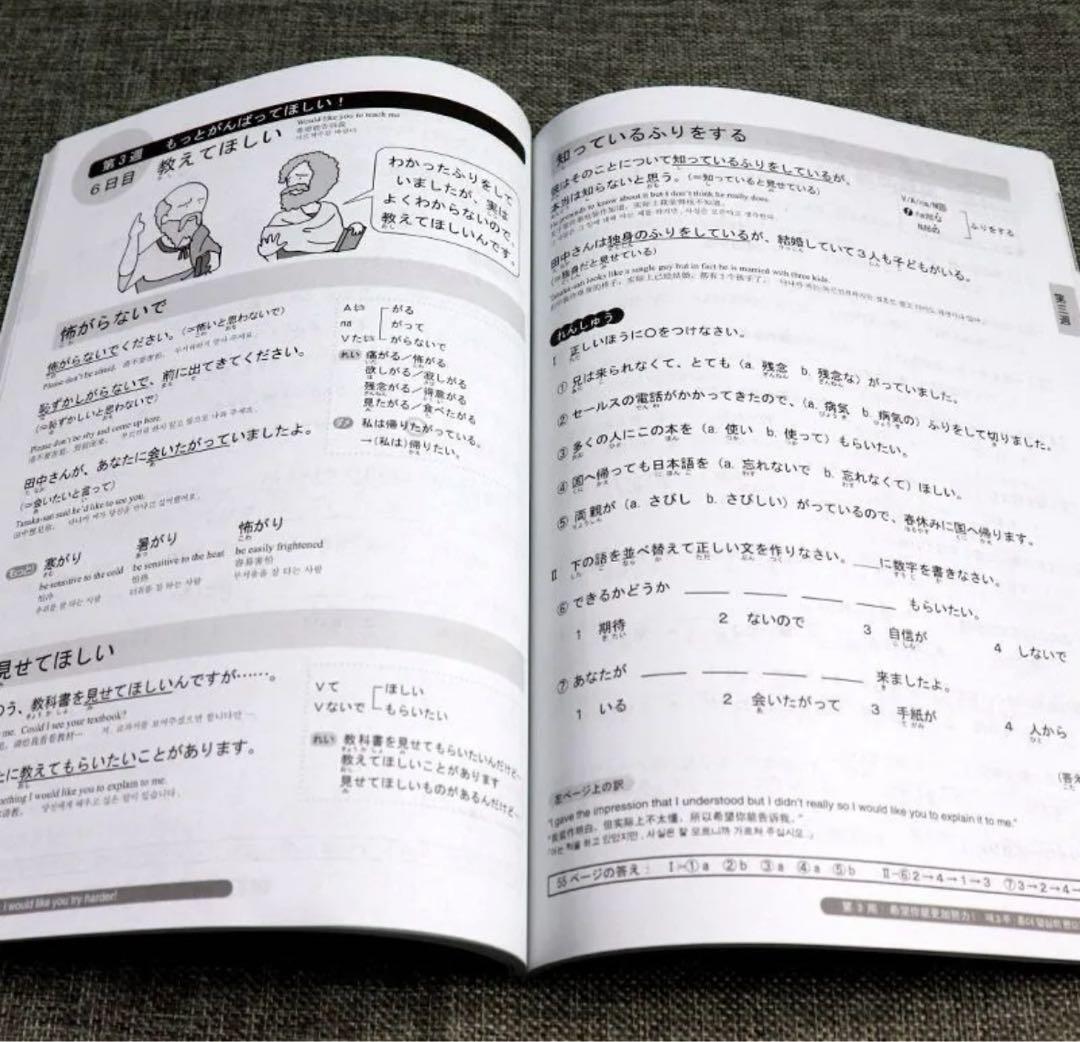 第3週 もっとがんばってほしい！
6日目 教えてほしい
Would like you to teach me
わかったふりをして
いましたが、実は
よくわからないので、
教えてほしいんです。
怖がらないで
怖がらないでください。(＝怖いと思わないで)
Please don't be afraid.
恥ずかしがらないで、前に出てきてください。
(＝恥ずかしいと思わないで)
Please don't be shy and come up here.
田中さんが、あなたに会いたがっていましたよ。
(＝会いたいと言って)
Tanaka-san said he'd like to see you.
Aい
na
Vたい
がる
がって
がらないで
れい 痛がる／怖がる
欲しがる／寂しがる
残念がる／得意がる
見たがる／食べたがる
私は帰りたがっている。
→(私は)帰りたい。
寒がり
be sensitive to the cold
怕冷
暑がり
be sensitive to the heat
怕热
怖がり
be easily frightened
容易害怕
見せてほしい
う、教科書を見せてほしいんですが……。
me. Could I see your textbook?
に教えてもらいたいことがあります。
something I would like you to explain to me.
Vて
Vないで
ほしい
もらいたい
れい 教科書を見せてもらいたいんだけど…
教えてほしいことがあります
見せてほしいものがあるんだけど…
I would like you try harder!
知っているふりをする
彼はそのことについて知っているふりをしているが、
本当は知らないと思う。(＝知っていると見せている)
He pretends to know about it but I don't think he really does.
田中さんは独身のふりをしているが、結婚していて3人も子どもがいる。
(＝独身だと見せている)
Tanaka-san looks like a single guy but in fact he is married with three kids.
ふりをする
第三週
れんしゅう
Ⅰ 正しいほうに○をつけなさい。
① 兄は来られなくて、とても（a. 残念 b. 残念な）がっていました。
② セールスの電話がかかってきたので、（a. 病気 b. 病気の）ふりをして切りました。
③ 多くの人にこの本を（a. 使い b. 使って）もらいたい。
④ 国へ帰っても日本語を（a. 忘れないで b. 忘れなくて）ほしい。
⑤ 両親が（a. さびし b. さびしい）がっているので、春休みに国へ帰ります。
Ⅱ 下の語を並べ替えて正しい文を作りなさい。___に数字を書きなさい。
⑥ できるかどうか ___ ___ ___ ___ もらいたい。
1 期待 2 ないので 3 自信が 4 しないで
⑦ あなたが ___ ___ ___ ___ 来ましたよ。
1 いる 2 会いたがって 3 手紙が 4 人から
左ページ上の訳
"I gave the impression that I understood but I didn't really so I would like you to explain it to me."
55ページの答え： Ⅰ-①a ②b ③a ④a ⑤b Ⅱ-⑥2→4→1→3 ⑦3→2→4→
第3周：希望你能更加努力！